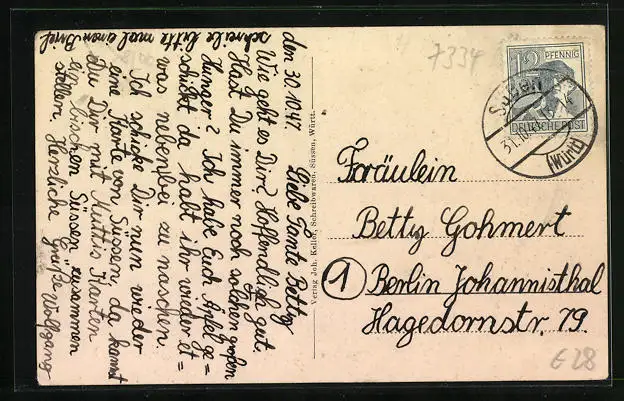 den 30.10.47.
Liebe Tante Betty
Wie geht es Dir? Hoffendlich gut.
Hast Du immer noch solchen großen
Hunger? Ich habe Euch Äpfel ge=
schickt da habt ihr wieder et=
was nebenbei zu naschen.
Ich schicke Dir nun wieder
eine Karte von Süssen, da kannst
Du Dir mit Muttis Karten
ein bischen Süssen zusammen
stellen, Herzliche Grüße Wolfgang
schreibe bitte mal einen Brief
Verlag Joh. Keller, Schreibwaren, Süssen, Württ.
7334
12 PFENNIG
DEUTSCHE POST
Süssen
31.10.
(Württ)
Foräulein
Betty Gohmert
1 Berlin Johannisthal
Hagedornstr. 79.
E28